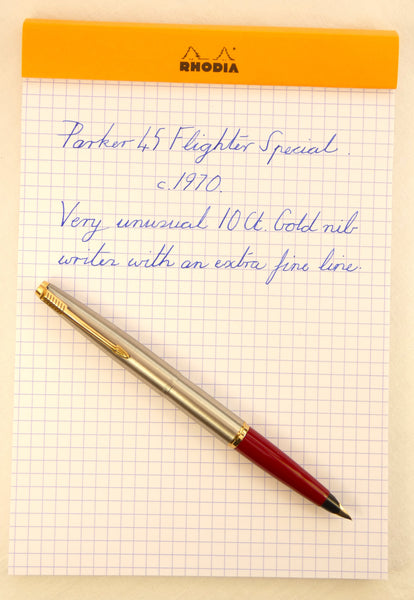 RHODIA
Parker 45 Flighter Special.
c.1970.
Very unusual 10 Ct. Gold nib
writer with an extra fine line.